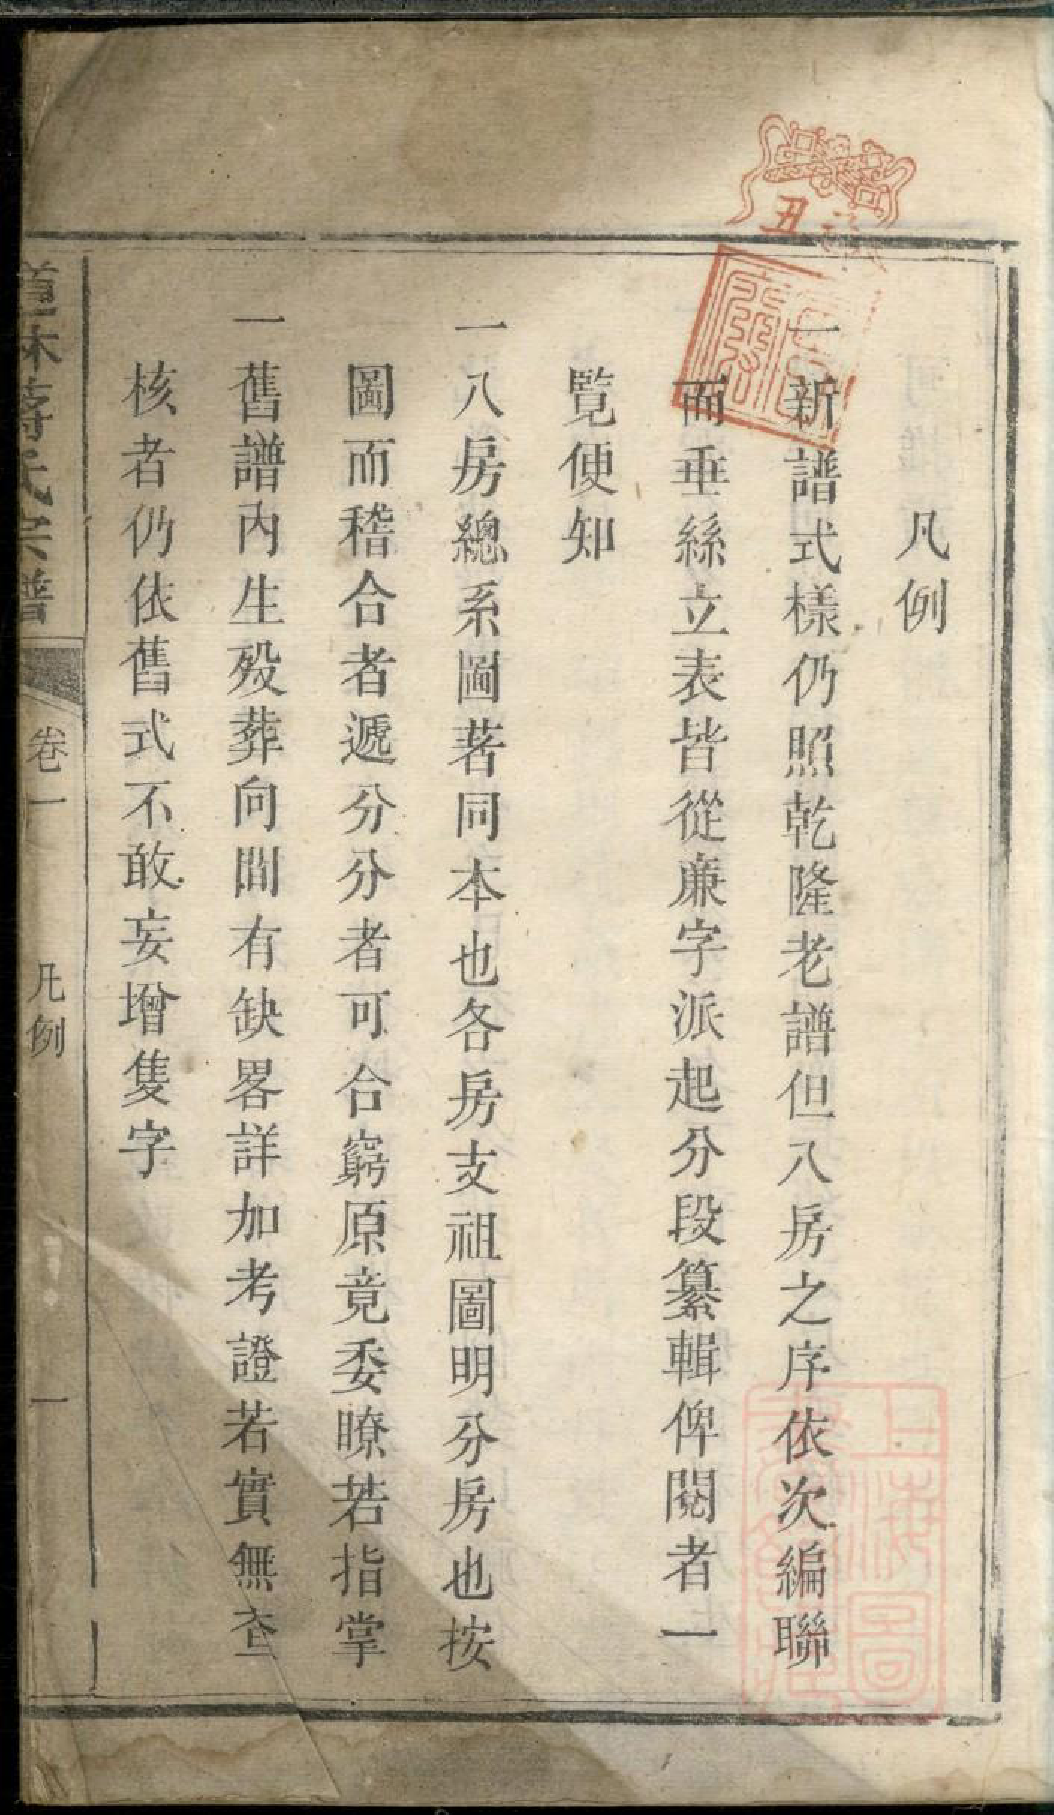 凡例
一新譜式樣仍照乾隆老譜但八房之序依次編聯
而垂絲立表皆從廉字派起分段纂輯俾閱者一
覽便知
一八房總系圖著同本也各房支祖圖明分房也按
圖而稽合者遞分分者可合窮原竟委瞭若指掌
一舊譜內生歿葬向間有缺畧詳加考證若實無查
核者仍依舊式不敢妄增隻字
道林蔣氏宗譜
卷一
凡例
一
丑
上海圖